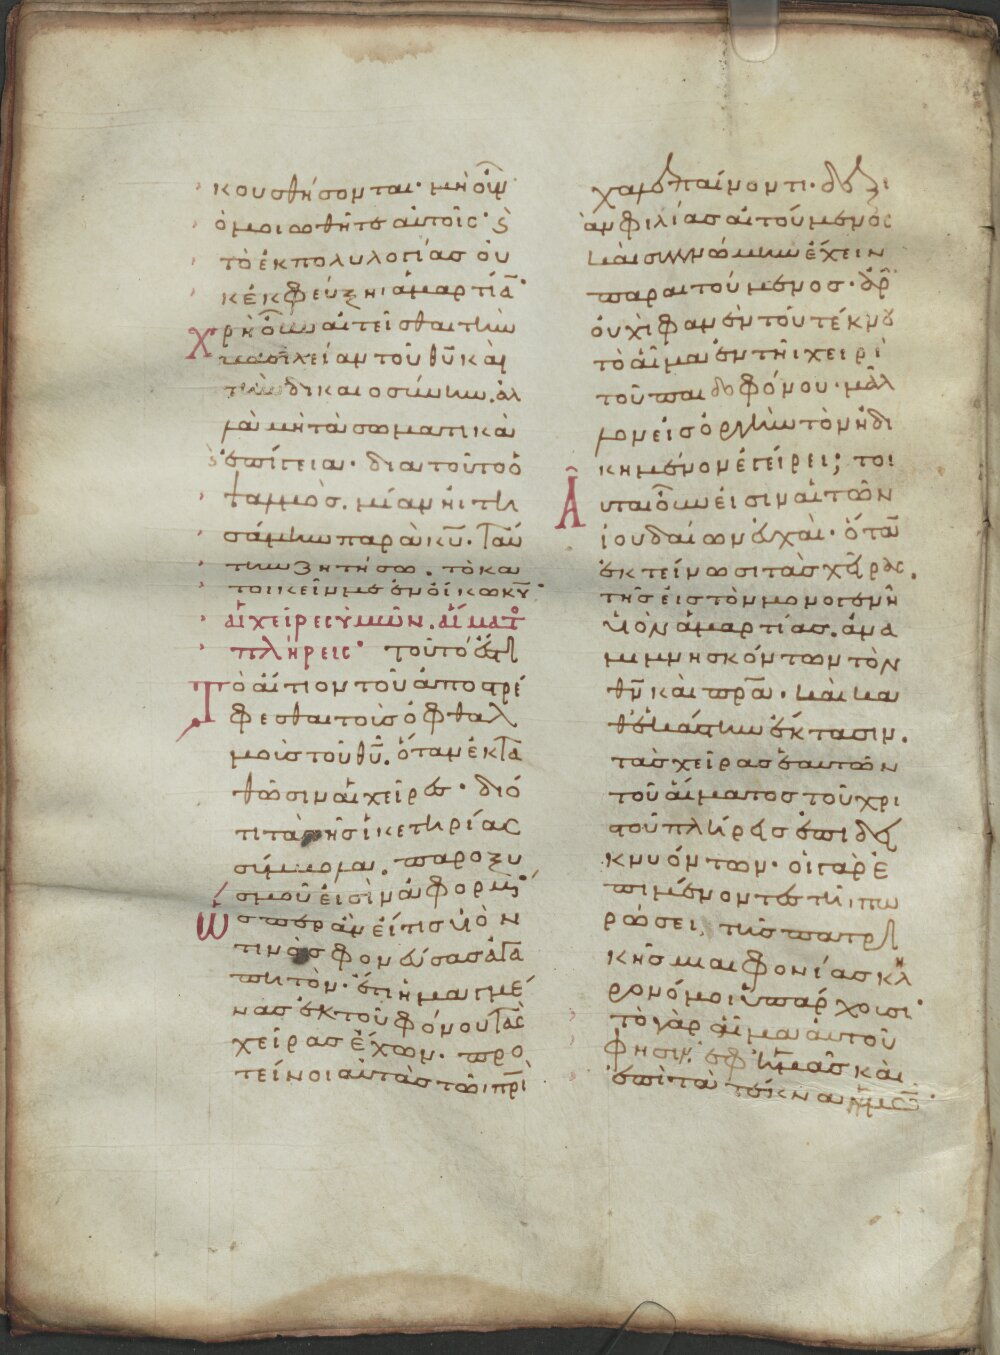 κουσθήσονται· μὴ οὖν
ὁμοιωθῆτε αὐτοῖς· ϛ̀
τὸ ἐκ πολυλογίας οὐ
κ ἐκφεύξηι ἁμαρτίαν
Χρὴ οὖν αἰτεῖσθαι τὴν
βασιλείαν τοῦ θῦ καὶ
τὴν δικαιοσύνην. ἀλ
λὰ μὴ τὰ σωματικὰ
ϛ̀ ἐπίγεια· διατοῦτο ὁ
ψαλμὸς. μίαν ἠιτη
σάμην παρὰ κῦ. ταύ
την ζητήσω. τὸ κα
τοικεῖν με ἐν οἴκω κῦ·
αἱ χεῖρες ὑμῶν. αἵματος
πλήρεις· τοῦτό ἐστι
Τὸ αἴτιον τοῦ ἀποστρέ
φεσθαι τοὺς ὀφθαλ
μοὺς τοῦ θῦ. ὅταν ἐκτα
θῶσιν αἱ χεῖρες· διό
τι τὰ τῆς ἱκετηρίας
σύμβολα. παροξυ
σμοῦ εἰσὶν ἀφορμή·
Ὥσπερ ἂν εἴ τις υἱὸν
τινὸς φονεύσας ἀγα
πητὸν· ἔτι ἡμαγμέ
νας ἐκ τοῦ φόνου τὰς
χεῖρας ἔχων. προ
τείνοι αὐτὰς τῶι πρὶ
χαλεπαίνοντι· δεξι
ὰν φιλίας αἰτούμενος
καὶ συγγνώμην ἔχειν
παραιτούμενος· ἆρ
οὐχὶ φανὲν τοῦ τέκνου
τὸ αἷμα ἐν τῆι χειρὶ
τοῦ παιδοφόνου· μᾶλ
λον εἰς ὀργὴν τὸν ἠδι
κημένον ἐγείρει; τοι
Αῦται οὖν εἰσιν αἱ τῶν
ἰουδαίων εὐχαὶ· ὅταν
ἐκτείνωσι τὰς χεῖρας.
τῆς εἰς τὸν μονογενῆ
υἱὸν ἁμαρτίας. ἀνα
μιμνησκόντων τὸν
θν καὶ πρα· καὶ κα
θ' ἑκάστην ἔκτασιν.
τὰς χεῖρας ἑαυτῶν
τοῦ αἵματος τοῦ χρι
στοῦ πλήρεις ἐπιδει
κνυόντων· οἱ γὰρ ἐ
πιμένοντες τῆι πω
ρώσει. τῆς πατρι
κῆς μιαιφονίας κλη
ρονόμοι ὑπάρχουσι·
τὸ γὰρ αἷμα αὐτοῦ
φησιν ἐφ' ἡμᾶς καὶ
ἐπὶ τὰ τέκνα ἡμῶν·